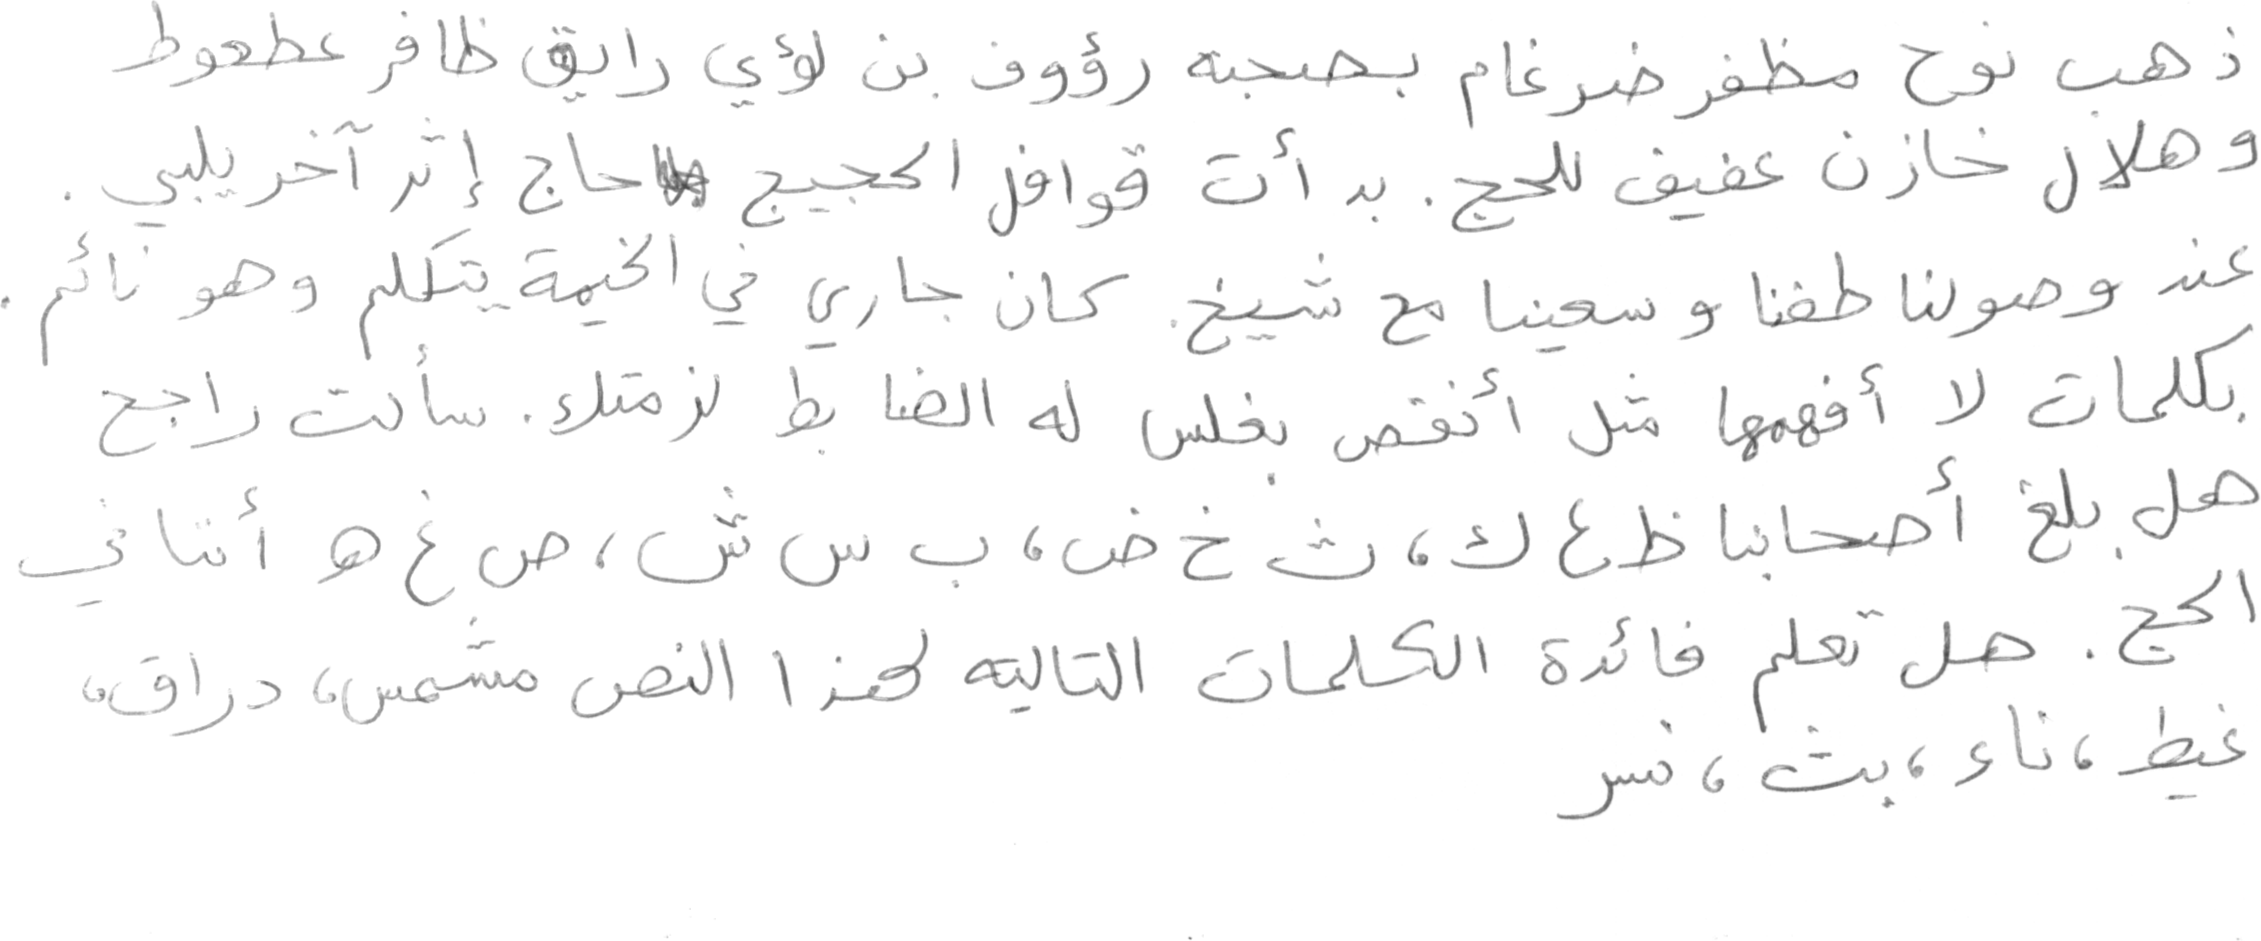 ذهب نوح مظفر ضرغام بصحبته رؤوف بن لؤي رايق ظافر عطعوط
وهلال خازن عفيف للحج. بدأت قوافل الحجيج حاج إثر آخر يلبي.
عند وصولنا طفنا وسعينا مع شيخ. كان جاري في الخيمة يتكلم وهو نائم.
بكلمات لا أفهمها مثل أنقص بغلس له الضابط لزمتك. سألت راجح
هل بلغ أصحابنا ظ ع ك، ث خ ض، ب س ش، ص غ ه أننا في
الحج. هل تعلم فائدة الكلمات التاليه لهذا النص مشمس، دراق،
غيظ، ناء، بث، نسر